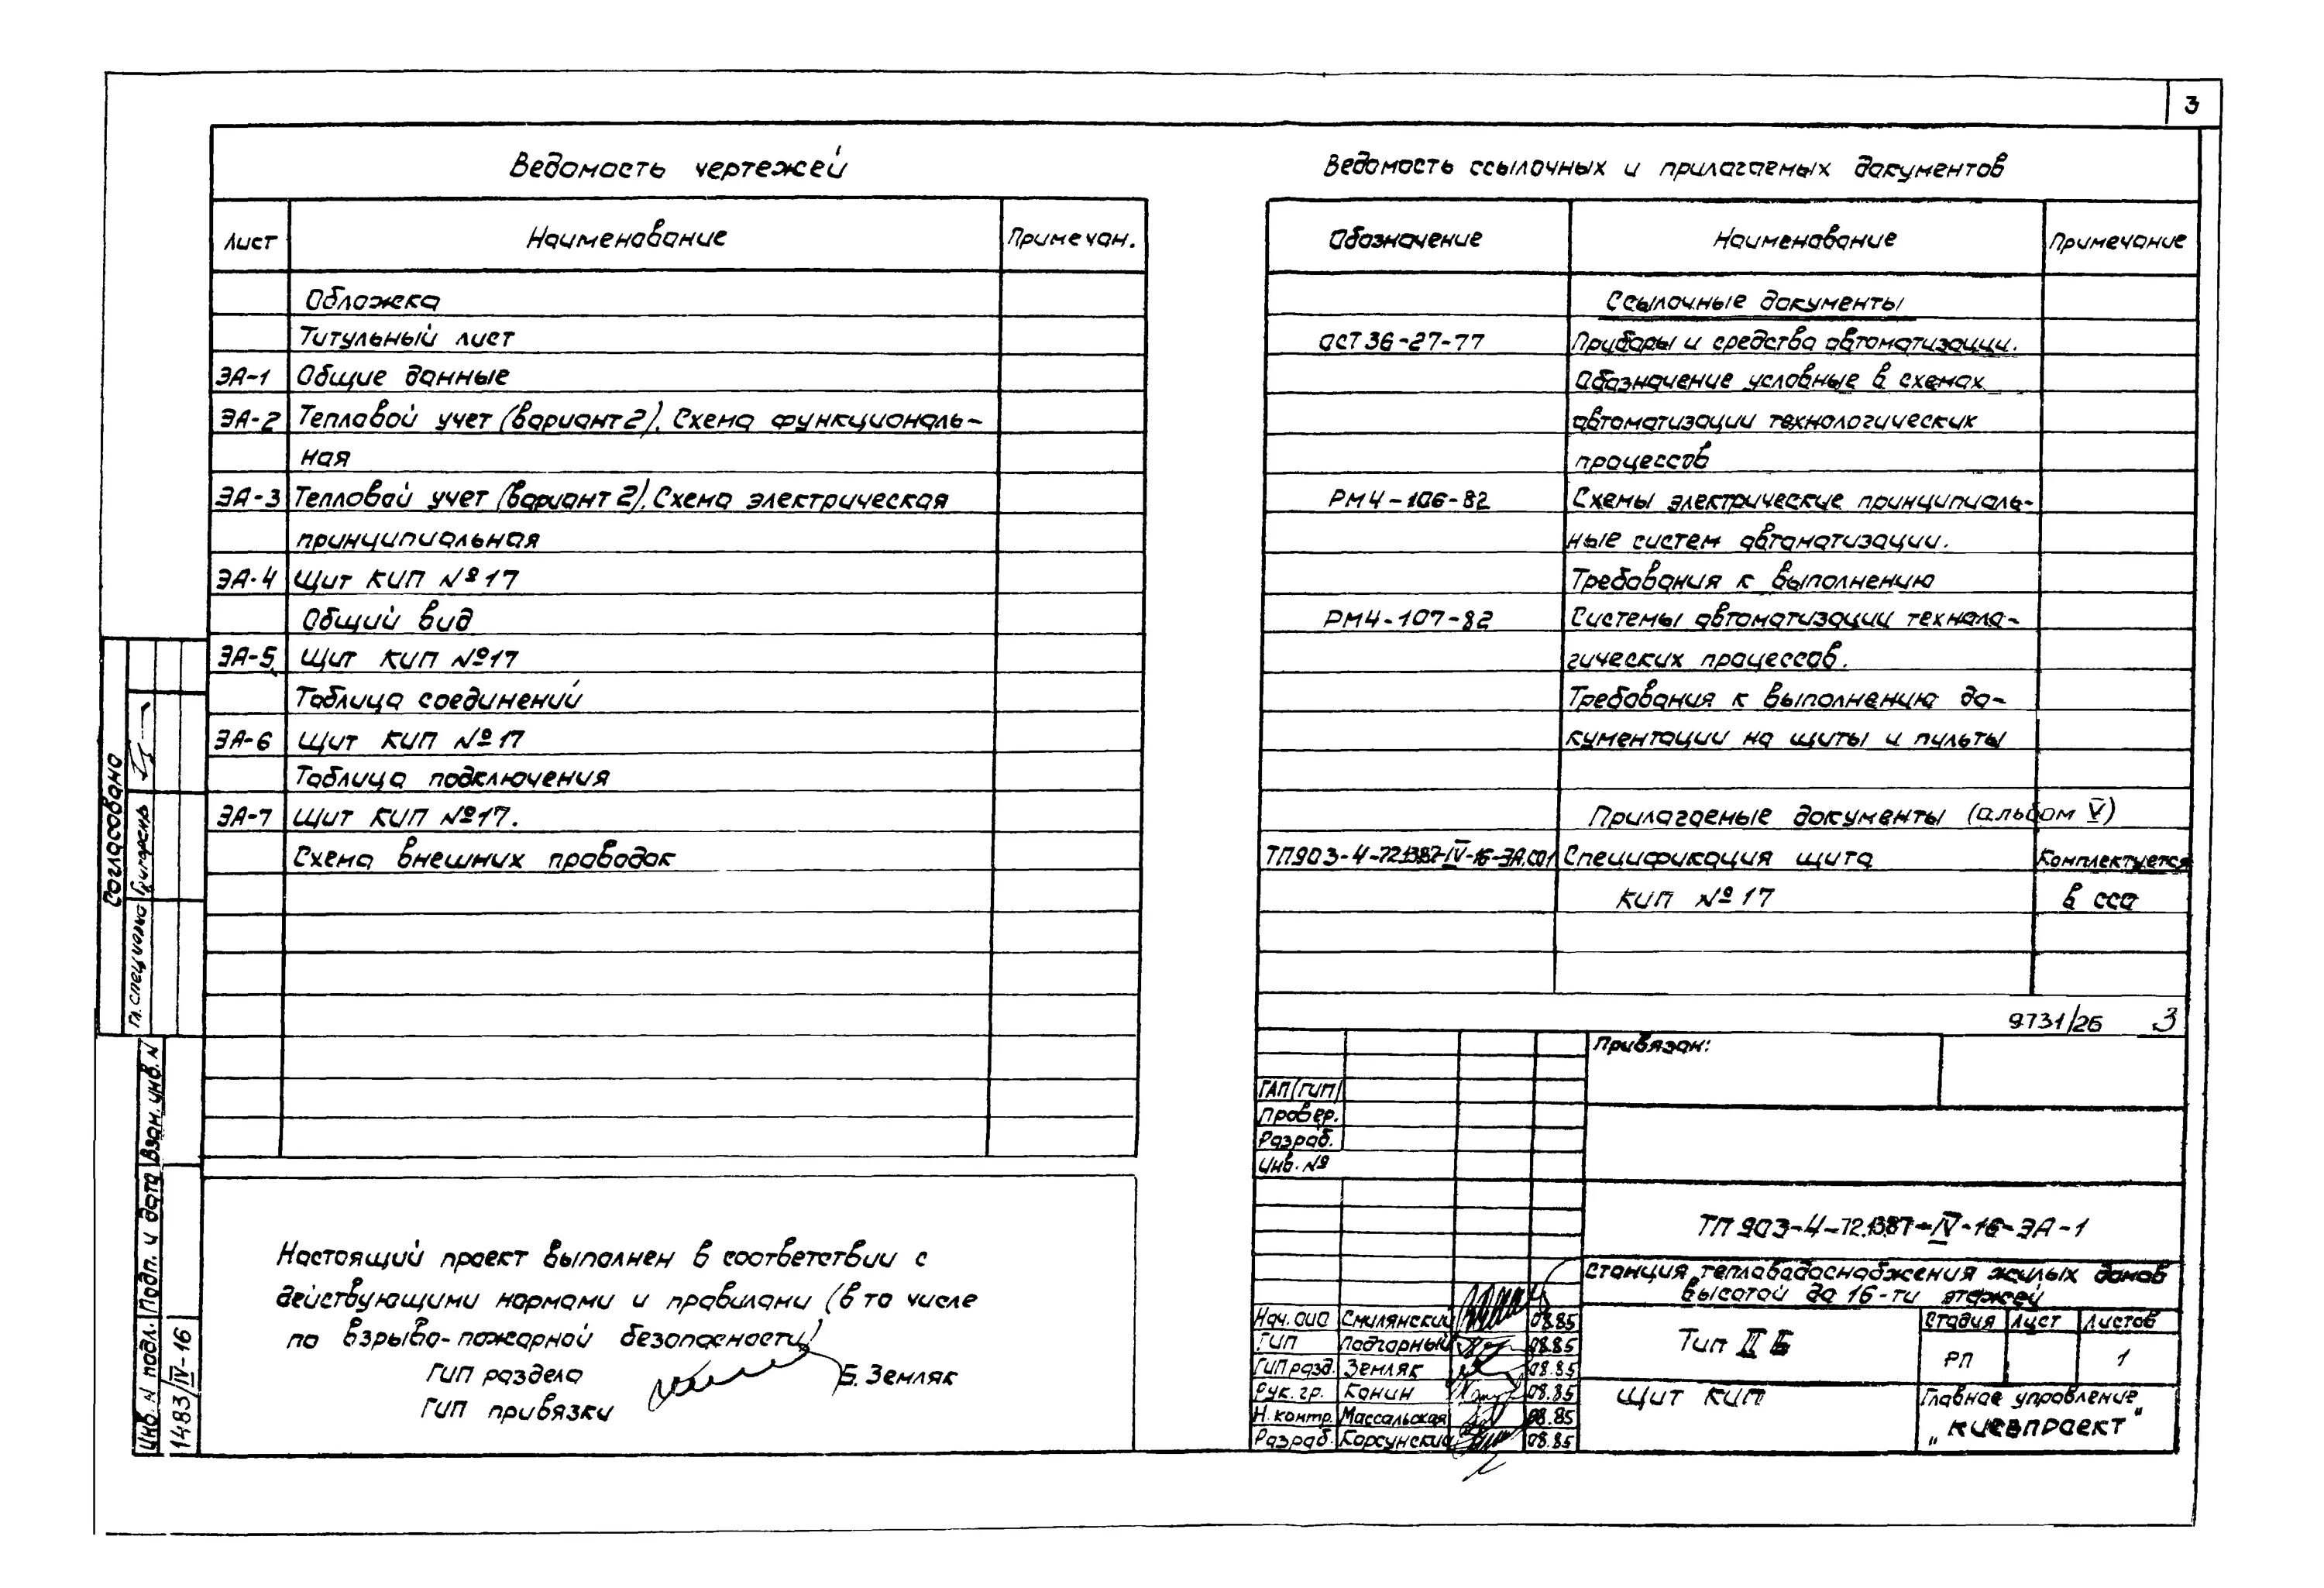 3
Ведомость чертежей
Лист Наименование Примечан.
Обложка
Титульный лист
ЭА-1 Общие данные
ЭА-2 Тепловой учет (вариант 2). Схема функциональ-
ная
ЭА-3 Тепловой учет (вариант 2). Схема электрическая
принципиальная
ЭА-4 Щит КИП №17
Общий вид
ЭА-5 Щит КИП №17
Таблица соединений
ЭА-6 Щит КИП №17
Таблица подключения
ЭА-7 Щит КИП №17.
Схема внешних проводок
Настоящий проект выполнен в соответствии с
действующими нормами и правилами (в то числе
по взрыво-пожарной безопасности)
ГИП раздела Б. Земляк
ГИП привязки
Ведомость ссылочных и прилагаемых документов
Обозначение Наименование Примечание
Ссылочные документы
ОСТ 36-27-77 Приборы и средства автоматизации.
Обозначение условные в схемах
автоматизации технологических
процессов
РМ4-106-82 Схемы электрические принципиаль-
ные систем автоматизации.
Требования к выполнению
РМ4-107-82 Системы автоматизации техноло-
гических процессов.
Требования к выполнению до-
кументации на щиты и пульты
Прилагаемые документы (альбом V)
ТП903-4-72.13.87-IV-16-ЭА.СО1 Спецификация щита Комплектуется
КИП №17 в ССО
9731/26 3
Привязан:
ГАП(ГИП)
Провер.
Разраб.
Инв. №
ТП 903-4-72.13.87-IV-16-ЭА-1
Станция тепловодоснабжения жилых домов
высотой до 16-ти этажей
Нач. ОИО Смилянский 08.85
ГИП Подгорный 08.85
ГИП разд. Земляк 08.85
Рук. гр. Конин 08.85
Н. контр. Массальская 08.85
Разраб. Корсунский 08.85
Тип II Б
Стадия Лист Листов
РП 1
Щит КИП
Главное управление
„Киевпроект"
Согласовано
Гл. спец.
Инв. N подл. Подп. и дата Взам. инв. N
1483/IV-16